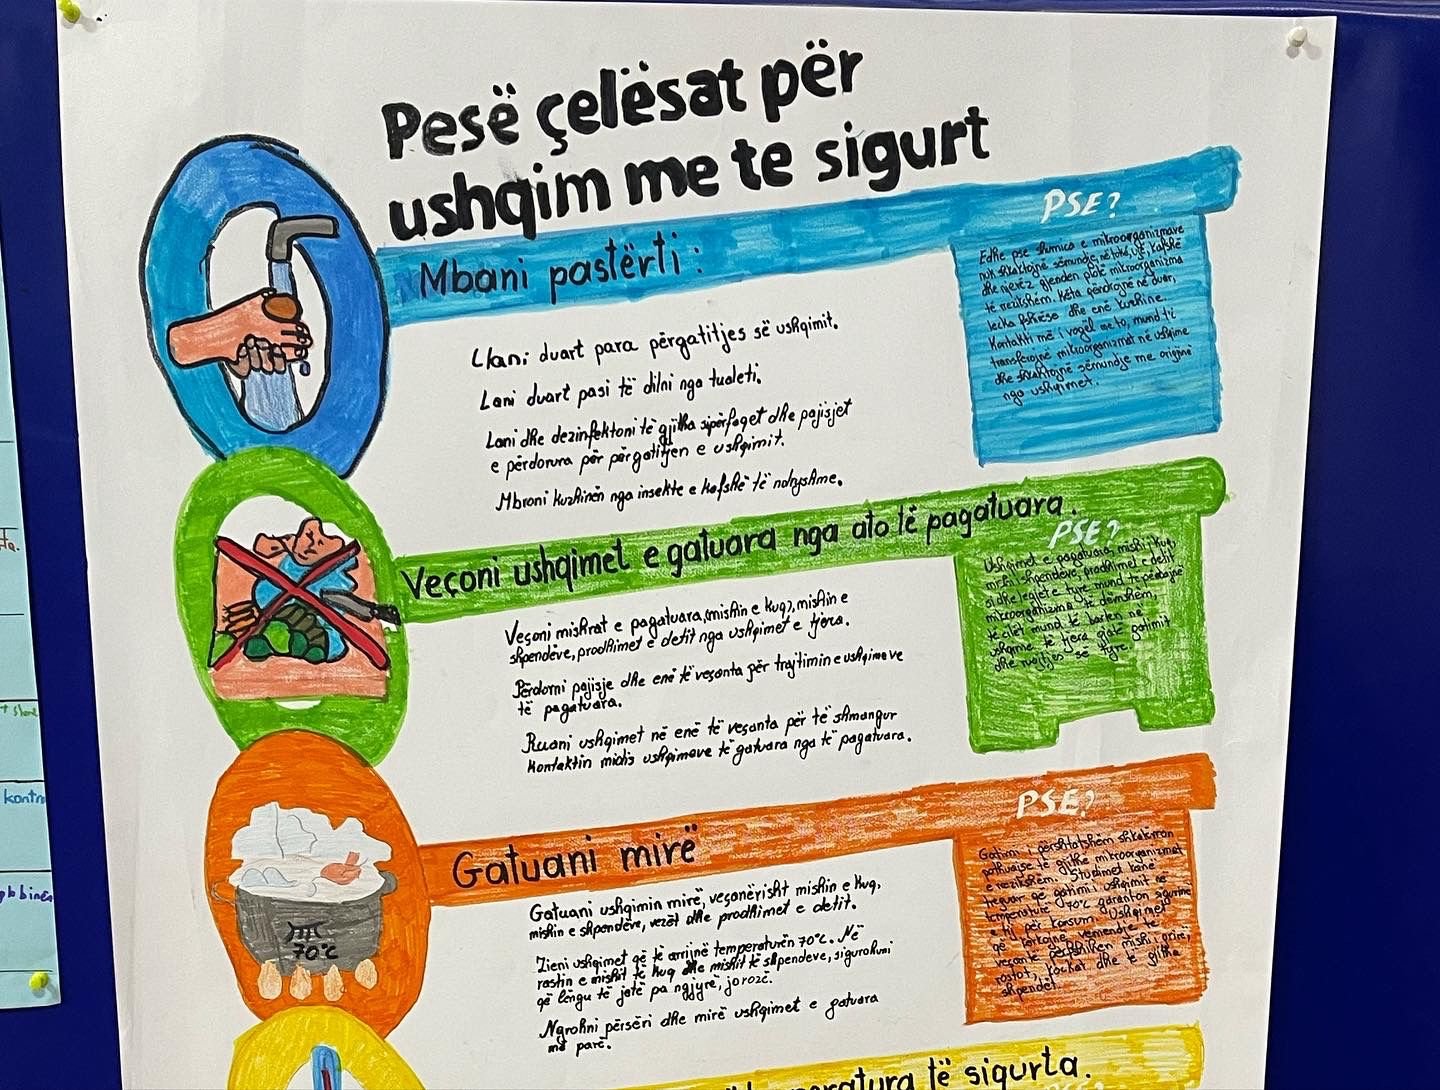 Pesë çelësat për
ushqim me te sigurt
Mbani pastërti:
Llani duart para përgatitjes së ushqimit.
Lani duart pasi të dilni nga tualeti.
Lani dhe dezinfektoni të gjitha sipërfaqet dhe pajisjet
e përdorura për përgatitjen e ushqimit.
Mbroni kuzhinën nga insekte e kafshë të ndryshme.
PSE?
Edhe pse shumica e mikroorganizmave
nuk shkaktojnë sëmundje, në tokë, ujë, kafshë
dhe njerëz gjenden plot mikroorganizma
të rrezikshëm. Këta qëndrojnë në duar,
lecka fshirëse dhe enë kuzhine.
Kontakti më i vogël me to, mund t'i
transferojnë mikroorganizmat në ushqime
dhe shkaktojnë sëmundje me origjinë
nga ushqimet.
Veçoni ushqimet e gatuara nga ato të pagatuara.
Veçoni mishrat e pagatuara,(mishin e kuq), mishin e
shpendëve, prodhimet e detit nga ushqimet e tjera.
Përdorni pajisje dhe enë të veçanta për trajtimin e ushqimeve
të pagatuara.
Ruani ushqimet në enë të veçanta për të shmangur
kontaktin midis ushqimeve të gatuara nga të pagatuara.
PSE?
Ushqimet e pagatuara, mishi i kuq,
mishi i shpendëve, prodhimet e detit
si dhe lëgjet e tyre mund të përmbajnë
mikroorganizma të dëmshëm,
të cilët mund të barten në
ushqime të tjera gjatë gatimit
dhe ruajtjes së tyre.
Gatuani mirë
Gatuani ushqimin mirë, veçanërisht mishin e kuq,
mishin e shpendëve, vezët dhe prodhimet e detit.
Zieni ushqimet që të arrijnë temperaturën 70°C. Në
rastin e mishit të kuq dhe mishit të shpendeve, sigurohuni
që lëngu të jetë pa ngjyrë, jo rozë.
Ngrohni përsëri dhe mirë ushqimet e gatuara
më parë.
70°C
PSE?
Gatimi i përshtatshëm shkatërron
pothuajse të gjithë mikroorganizmat
e rrezikshëm. Studimet kanë
treguar që gatimi i ushqimit në
temperaturë 70°C garanton sigurinë
e tij për konsum. Ushqimet
që kërkojnë vëmendje të
veçantë përfshihen mishi i grirë,
rostot, kockat dhe të gjitha
shpendët.
temperatura të sigurta.
kontro